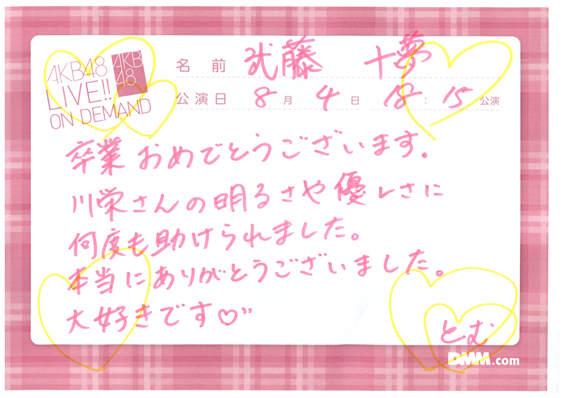 AKB48
LIVE!!
ON DEMAND
AKB
48
名前 武藤 十夢
公演日 8月4日 18:15公演
卒業おめでとうございます.
川栄さんの明るさや優しさに
何度も助けられました。
本当にありがとうございました。
大好きです♡"
とむ
DMM.com